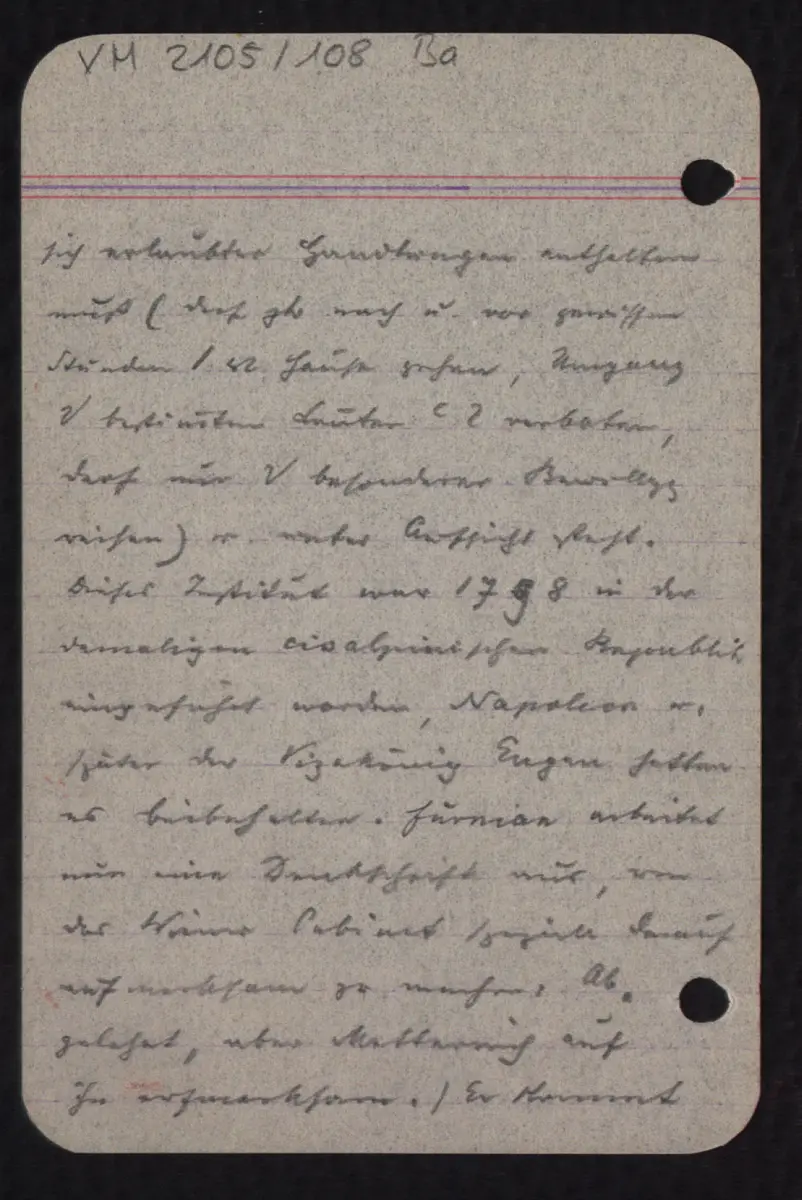 VM 2105/108 Ba
sich erlaubter Handlungen enthalten
muß (darf zb nach u. vor gewissen
Stunden aus Hause gehen, Umgang
bestimmten Leuten verboten,
darf nur besonderer Bewillgg
reisen) u. unter Aufsicht steht.
Dieses Institut war 1798 in der
damaligen cisalpinischen Republik
eingeführt worden, Napoleon u.
später der Vizekönig Eugen hatten
es beibehalten. Fürnian arbeitet
nun eine Denkschrift aus, um
das Wiener Cabinet speziell darauf
aufmerksam zu machen: Ab-
gelehnt, aber Metternich auf
ihn aufmerksam. / Er kommt